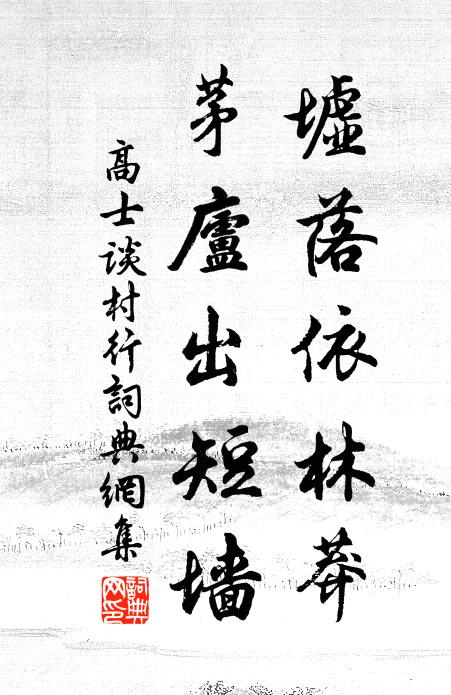 墟落依林莽
茅廬出短墙
高士谈村行詞典網集
詞典网印